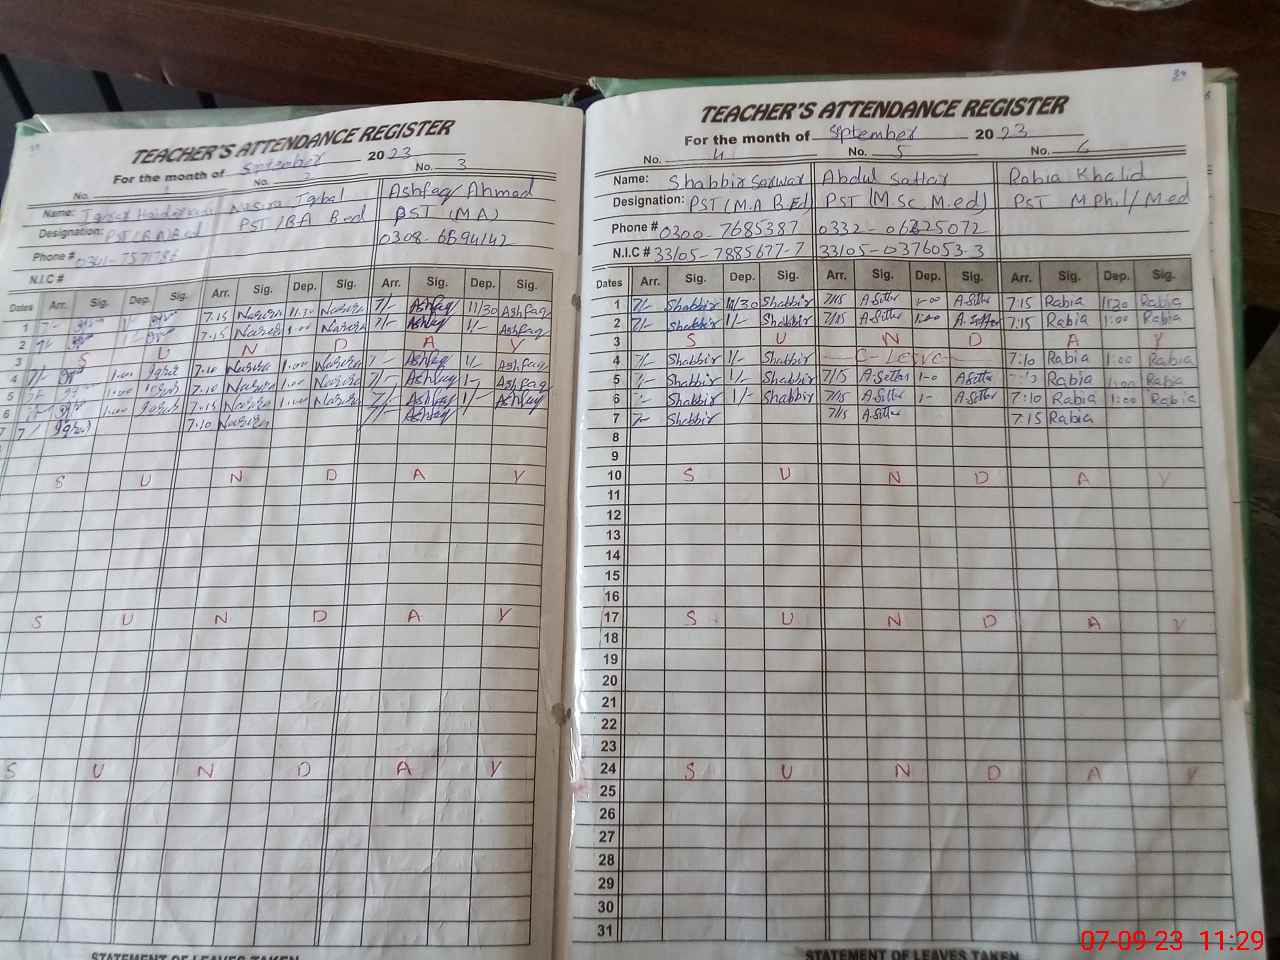 TEACHER'S ATTENDANCE REGISTER
For the month of September 2023
No. No. 2 No. 3
Name: Nasira Iqbal Ashfaq Ahmed
Designation: PST (B.A) B.ed PST (BA B.ed) PST (MA)
Phone # 0308-6694142
N.I.C #
Dates Arr. Sig. Dep. Sig. Arr. Sig. Dep. Sig. Arr. Sig. Dep. Sig.
1 7:15 Nasira 11:30 Nasira 7/- Ashfaq 11/30 Ashfaq
2 7:15 Nasira 1:00 Nasira 7/- Ashfaq 1/- Ashfaq
3 S U N D A Y
4 7/- 1:00 Iqra 7:10 Nasira 1:00 Nasira 7/- Ashfaq 1/- Ashfaq
5 1:00 Iqra 7:10 Nasira 1:00 Nasira 7/- Ashfaq 1/- Ashfaq
6 1:00 Iqra 7:15 Nasira 1:00 Nasira 7/- Ashfaq 1/- Ashfaq
7 7/ 7:10 Nasira 7/- Ashfaq
S U N D A Y
S U N D A Y
S U N D A Y
STATEMENT OF LEAVES TAKEN
TEACHER'S ATTENDANCE REGISTER
For the month of September 2023
No. 4 No. 5 No. 6
Name: Shabbir Sarwar Abdul Sattar Rabia Khalid
Designation: PST (M.A B.Ed) PST (M.Sc, M.ed) PST M Phil / M.ed
Phone # 0300-7685387 0332-06625072
N.I.C # 33105-7885677-7 33105-0376053-3
Dates Arr. Sig. Dep. Sig. Arr. Sig. Dep. Sig. Arr. Sig. Dep. Sig.
1 7/- Shabbir 11/30 Shabbir 7/15 A.Sattar 1-00 A.Sattar 7:15 Rabia 11:20 Rabia
2 7/- Shabbir 1/- Shabbir 7/15 A.Sattar 1:00 A.Sattar 7:15 Rabia 1:00 Rabia
3 S U N D A Y
4 7/- Shabbir 1/- Shabbir C-Leave 7:10 Rabia 1:00 Rabia
5 7/- Shabbir 1/- Shabbir 7/15 A.Sattar 1-0 A.Sattar Rabia 1:00 Rabia
6 7/- Shabbir 1/- Shabbir 7/15 A.Sattar 1- A.Sattar 7:10 Rabia 1:00 Rabia
7 7/- Shabbir 7/15 A.Sattar 7:15 Rabia
8
9
10 S U N D A Y
11
12
13
14
15
16
17 S U N D A Y
18
19
20
21
22
23
24 S U N D A Y
25
26
27
28
29
30
31
STATEMENT OF LEAVES TAKEN
07-09-23 11:29